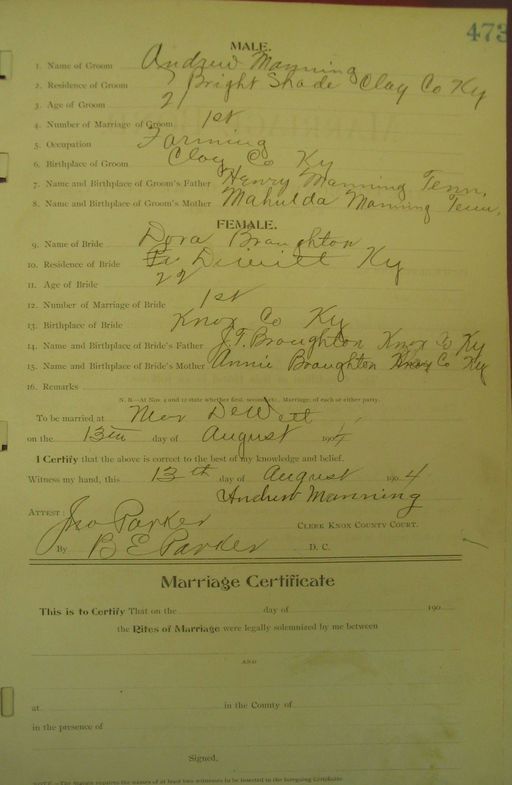 473
MALE.
1. Name of Groom Andrew Manning
2. Residence of Groom Bright Shade Clay Co Ky
3. Age of Groom 21
4. Number of Marriage of Groom 1st
5. Occupation Farming
6. Birthplace of Groom Clay Co Ky
7. Name and Birthplace of Groom's Father Henry Manning Tenn.
8. Name and Birthplace of Groom's Mother Mahulda Manning Tenn.
FEMALE.
9. Name of Bride Dora Broughton
10. Residence of Bride Dewitt Ky
11. Age of Bride 22
12. Number of Marriage of Bride 1st
13. Birthplace of Bride Knox Co Ky
14. Name and Birthplace of Bride's Father J.T. Broughton Knox Co Ky
15. Name and Birthplace of Bride's Mother Annie Broughton Knox Co Ky
16. Remarks
N. B.—At Nos. 4 and 12 state whether first, second, etc., Marriage, of each or either party.
To be married at Near DeWitt
on the 13th day of August 1904
I Certify that the above is correct to the best of my knowledge and belief.
Witness my hand, this 13th day of August 1904
Andrew Manning
ATTEST:
Jno Parker CLERK KNOX COUNTY COURT.
By B E Parker D. C.
Marriage Certificate
This is to Certify That on the day of 190
the Rites of Marriage were legally solemnized by me between
AND
at in the County of
in the presence of
Signed,
NOTE.—The statute requires the names of at least two witnesses to be inserted in the foregoing Certificate.